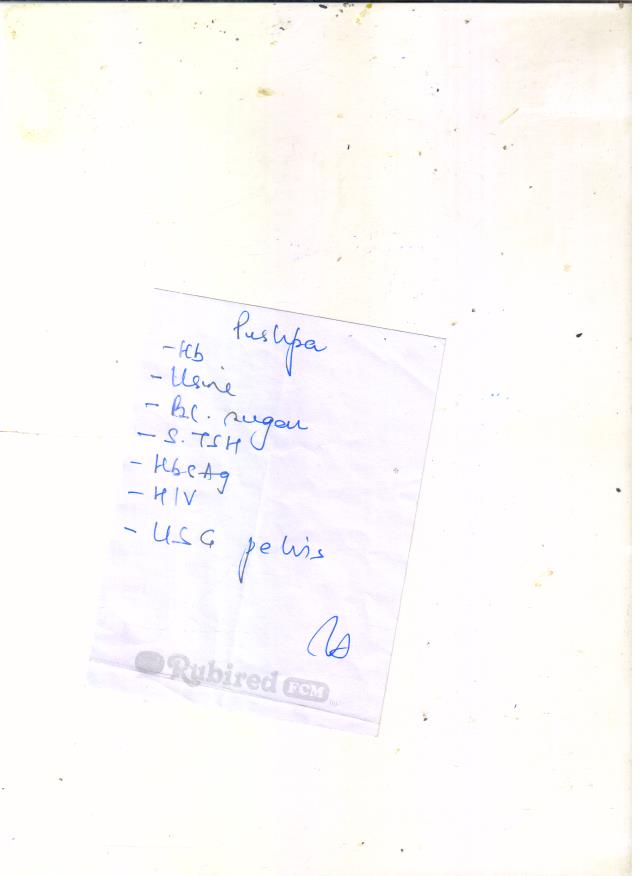 Pushpa
- Hb
- Urine
- Bl. sugar
- S. TSH
- HbsAg
- HIV
- USG pelvis
Rubired FCM